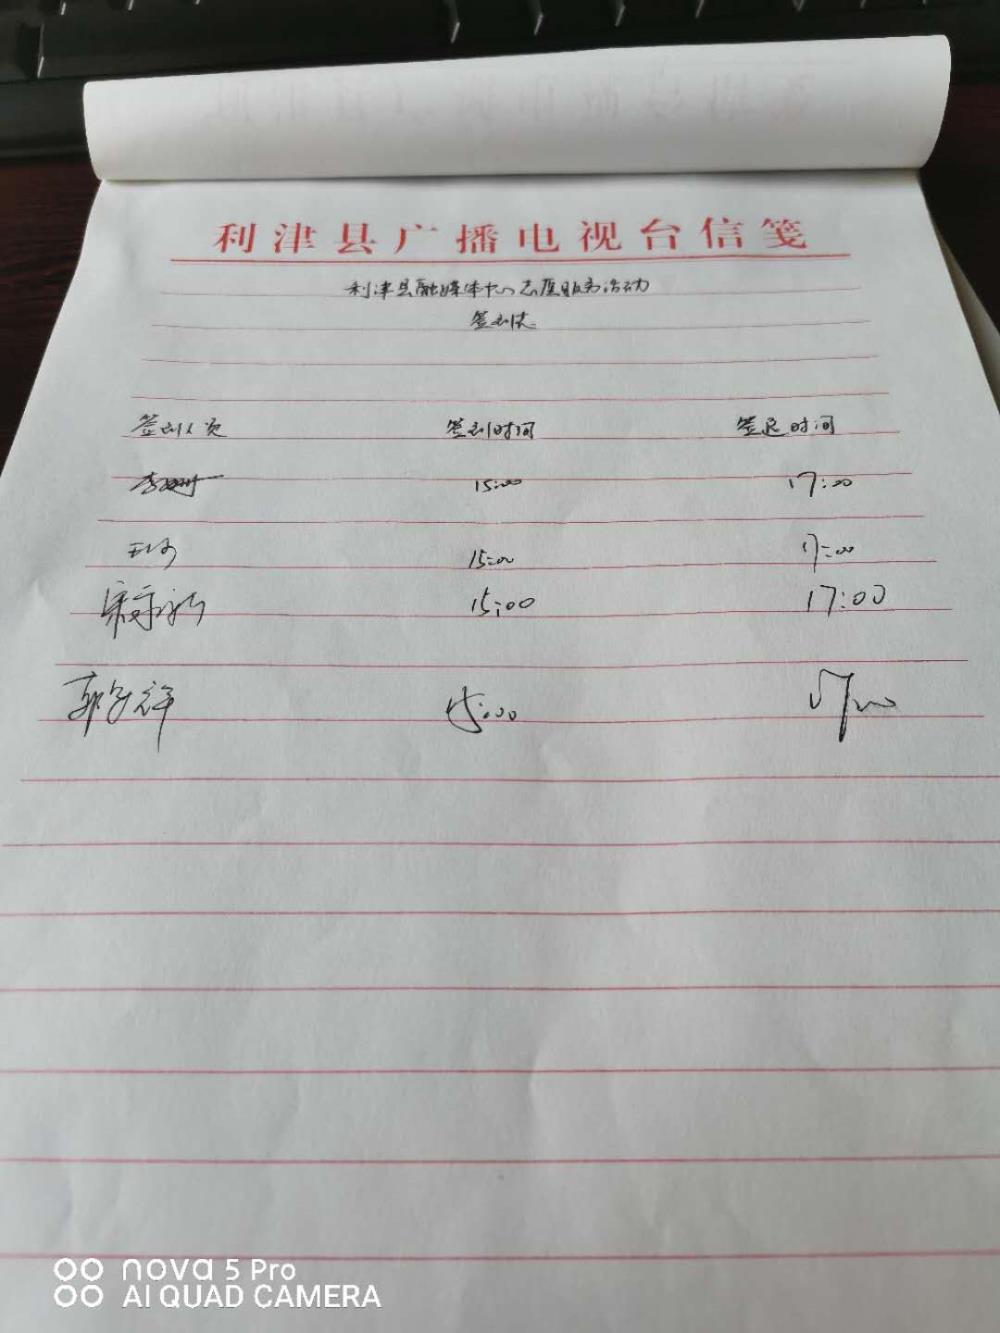 利津县广播电视台信笺
利津县融媒体中心志愿服务活动
签到表
签到人员 签到时间 签退时间
李姗 15:00 17:00
15:00 17:00
15:00 17:00
郭 祥 15:00 17:00
nova 5 Pro
AI QUAD CAMERA